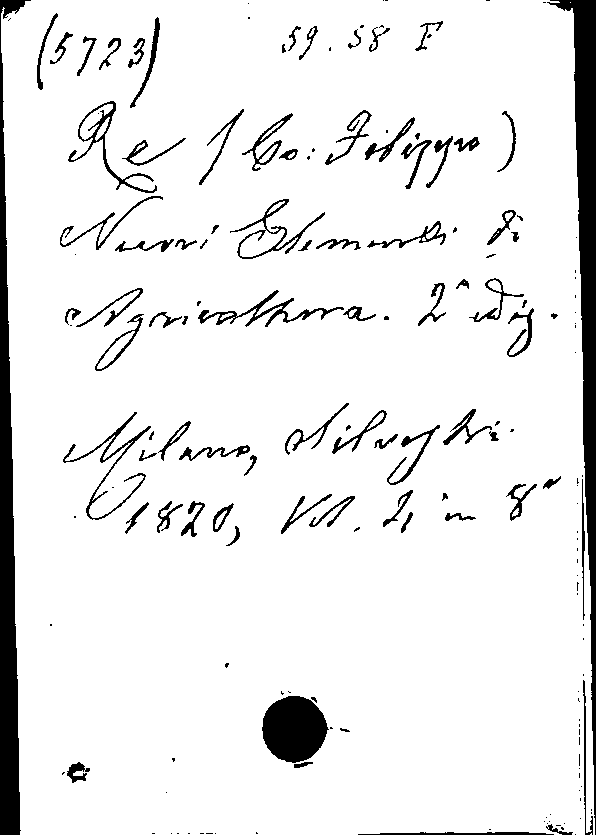 (5723) 59.58 F
Re (Co: Filippo)
Nuovi Elementi di
Agricoltura. 2ª ediz.
Milano, Silvestri.
1820, Vol. 4 in 8°